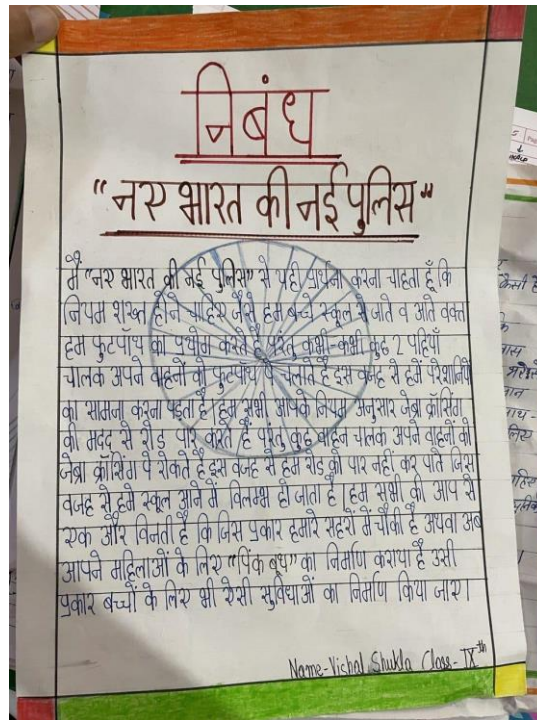 निबंध
"नए भारत की नई पुलिस"
मैं "नए भारत की नई पुलिस" से यही प्रार्थना करना चाहता हूँ कि
नियम शख्त होने चाहिए जैसे हम बच्चे स्कूल से जाते व आते वक्त
हम फुटपॉथ का प्रयोग करते है परंतु कभी-कभी कुछ 2 पहियाँ
चालक अपने वाहनों को फुटपॉथ पे चलाते है इस वजह से हमें परेशानियों
का सामना करना पड़ता है। हम सभी आपके नियम अनुसार जेब्रा क्रॉसिंग
की मदद से रोड पार करते है परंतु कुछ वाहन चालक अपने वाहनों को
जेब्रा क्रॉसिंग पे रोकते है इस वजह से हम रोड को पार नहीं कर पाते जिस
वजह से हमे स्कूल आने में विलम्भ हो जाता है। हम सभी की आप से
एक और विनती है कि जिस प्रकार हमारे सहरों में चौकी है अथवा अब
आपने महिलाओं के लिए "पिंक बूथ" का निर्माण कराया है उसी
प्रकार बच्चों के लिए भी ऐसी सुविधाओं का निर्माण किया जाए।
Name-Vishal Shukla Class-IXth